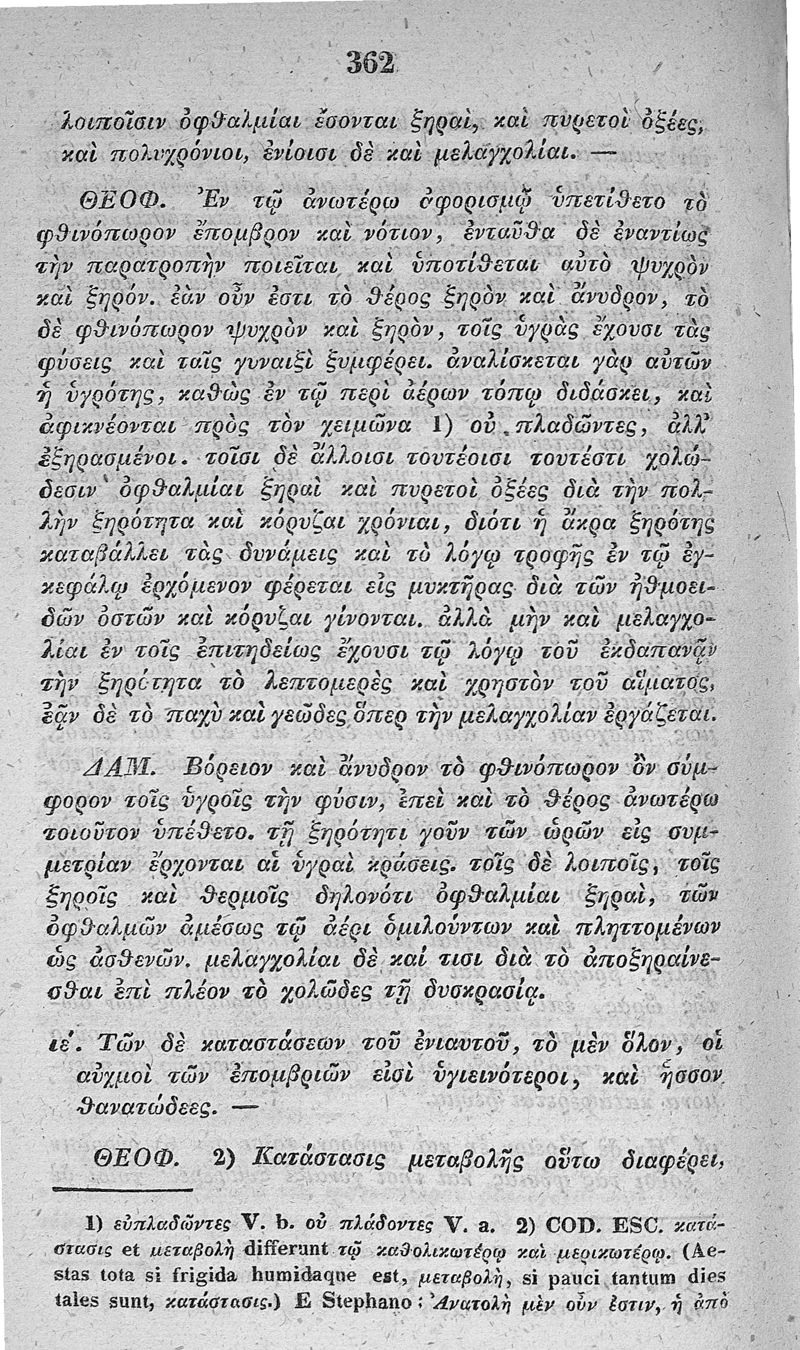 362
λοιποῖσιν ὀφθαλμίαι ἔσονται ξηραὶ, καὶ πυρετοὶ ὀξέες,
καὶ πολυχρόνιοι, ἐνίοισι δὲ καὶ μελαγχολίαι. —
ΘΕΟΦ. Ἐν τῷ ἀνωτέρω ἀφορισμῷ ὑπετίθετο τὸ
φθινόπωρον ἔπομβρον καὶ νότιον, ἐνταῦθα δὲ ἐναντίως
τὴν παρατροπὴν ποιεῖται καὶ ὑποτίθεται αὐτὸ ψυχρὸν
καὶ ξηρόν. ἐὰν οὖν ἐστι τὸ θέρος ξηρὸν καὶ ἄνυδρον, τὸ
δὲ φθινόπωρον ψυχρὸν καὶ ξηρὸν, τοῖς ὑγρὰς ἔχουσι τὰς
φύσεις καὶ ταῖς γυναιξὶ ξυμφέρει. ἀναλίσκεται γὰρ αὐτῶν
ἡ ὑγρότης, καθὼς ἐν τῷ περὶ ἀέρων τόπῳ διδάσκει, καὶ
ἀφικνέονται πρὸς τὸν χειμῶνα 1) οὐ πλαδῶντες, ἀλλ᾽
ἐξηρασμένοι. τοῖσι δὲ ἄλλοισι τουτέοισι τουτέστι χολώ-
δεσιν ὀφθαλμίαι ξηραὶ καὶ πυρετοὶ ὀξέες διὰ τὴν πολ-
λὴν ξηρότητα καὶ κόρυζαι χρόνιαι, διότι ἡ ἄκρα ξηρότης
καταβάλλει τὰς δυνάμεις καὶ τὸ λόγῳ τροφῆς ἐν τῷ ἐγ-
κεφάλῳ ἐρχόμενον φέρεται εἰς μυκτῆρας διὰ τῶν ἠθμοει-
δῶν ὀστῶν καὶ κόρυζαι γίνονται. ἀλλὰ μὴν καὶ μελαγχο-
λίαι ἐν τοῖς ἐπιτηδείως ἔχουσι τῷ λόγῳ τοῦ ἐκδαπανᾷν
τὴν ξηρότητα τὸ λεπτομερὲς καὶ χρηστὸν τοῦ αἵματος,
ἐᾷν δὲ τὸ παχὺ καὶ γεῶδες ὅπερ τὴν μελαγχολίαν ἐργάζεται.
ΔΑΜ. Βόρειον καὶ ἄνυδρον τὸ φθινόπωρον ὂν σύμ-
φορον τοῖς ὑγροῖς τὴν φύσιν, ἐπεὶ καὶ τὸ θέρος ἀνωτέρω
τοιοῦτον ὑπέθετο. τῇ ξηρότητι γοῦν τῶν ὡρῶν εἰς συμ-
μετρίαν ἔρχονται αἱ ὑγραὶ κράσεις. τοῖς δὲ λοιποῖς, τοῖς
ξηροῖς καὶ θερμοῖς δηλονότι ὀφθαλμίαι ξηραὶ, τῶν
ὀφθαλμῶν ἀμέσως τῷ ἀέρι ὁμιλούντων καὶ πληττομένων
ὡς ἀσθενῶν. μελαγχολίαι δὲ καί τισι διὰ τὸ ἀποξηραίνε-
σθαι ἐπὶ πλέον τὸ χολῶδες τῇ δυσκρασίᾳ.
ιέ. Τῶν δὲ καταστάσεων τοῦ ἐνιαυτοῦ, τὸ μὲν ὅλον, οἱ
αὐχμοὶ τῶν ἐπομβριῶν εἰσὶ ὑγιεινότεροι, καὶ ἧσσον
θανατώδεες. —
ΘΕΟΦ. 2) Κατάστασις μεταβολῆς οὕτω διαφέρει,
1) εὐπλαδῶντες V. b. οὐ πλάδοντες V. a. 2) COD. ESC. κατά-
στασις et μεταβολὴ differunt τῷ καθολικωτέρῳ καὶ μερικωτέρῳ. (Ae-
stas tota si frigida humidaque est, μεταβολὴ, si pauci tantum dies
tales sunt, κατάστασις.) E Stephano: Ἀνατολὴ μὲν οὖν ἐστιν, ἡ ἀπὸ